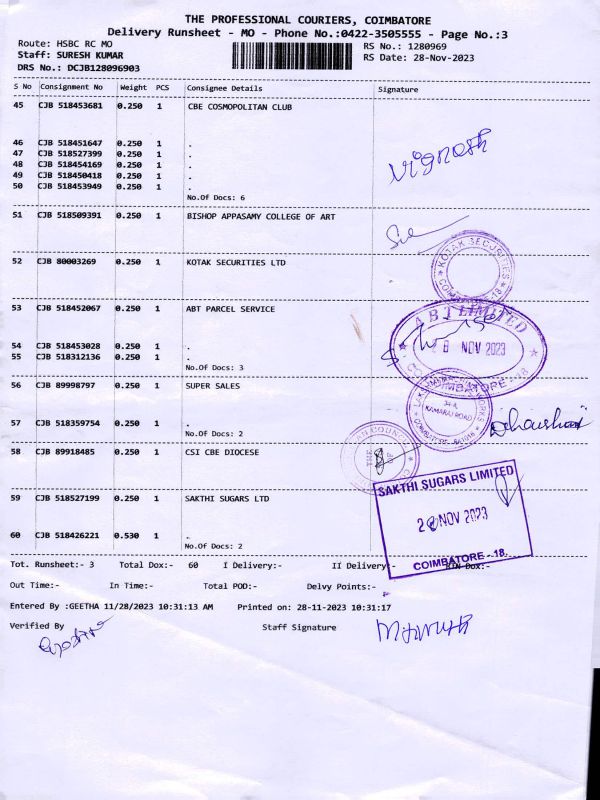 THE PROFESSIONAL COURIERS, COIMBATORE
Delivery Runsheet - MO - Phone No.:0422-3505555 - Page No.:3
Route: HSBC RC MO
RS No.: 1280969
Staff: SURESH KUMAR
RS Date: 28-Nov-2023
DRS No.: DCJB128096903
S No Consignment No Weight PCS Consignee Details Signature
45 CJB 518453681 0.250 1 CBE COSMOPOLITAN CLUB
46 CJB 518451647 0.250 1 .
47 CJB 518527399 0.250 1 .
48 CJB 518454169 0.250 1 .
49 CJB 518450418 0.250 1 .
50 CJB 518453949 0.250 1 .
Vignesh
No.Of Docs: 6
51 CJB 518509391 0.250 1 BISHOP APPASAMY COLLEGE OF ART
52 CJB 80003269 0.250 1 KOTAK SECURITIES LTD
KOTAK SECURITIES
53 CJB 518452067 0.250 1 ABT PARCEL SERVICE
ABT LIMITED
54 CJB 518453028 0.250 1 .
55 CJB 518312136 0.250 1 .
NOV 2023
No.Of Docs: 3
COIMBATORE - 18
56 CJB 89998797 0.250 1 SUPER SALES
KAMARAJ ROAD
57 CJB 518359754 0.250 1 .
No.Of Docs: 2
58 CJB 89918485 0.250 1 CSI CBE DIOCESE
59 CJB 518527199 0.250 1 SAKTHI SUGARS LTD
SAKTHI SUGARS LIMITED
28 NOV 2023
COIMBATORE - 18.
60 CJB 518426221 0.530 1 .
No.Of Docs: 2
Tot. Runsheet:- 3 Total Dox:- 60 I Delivery:- II Delivery:- Dox:-
Out Time:- In Time:- Total POD:- Delvy Points:-
Entered By :GEETHA 11/28/2023 10:31:13 AM Printed on: 28-11-2023 10:31:17
Verified By Staff Signature